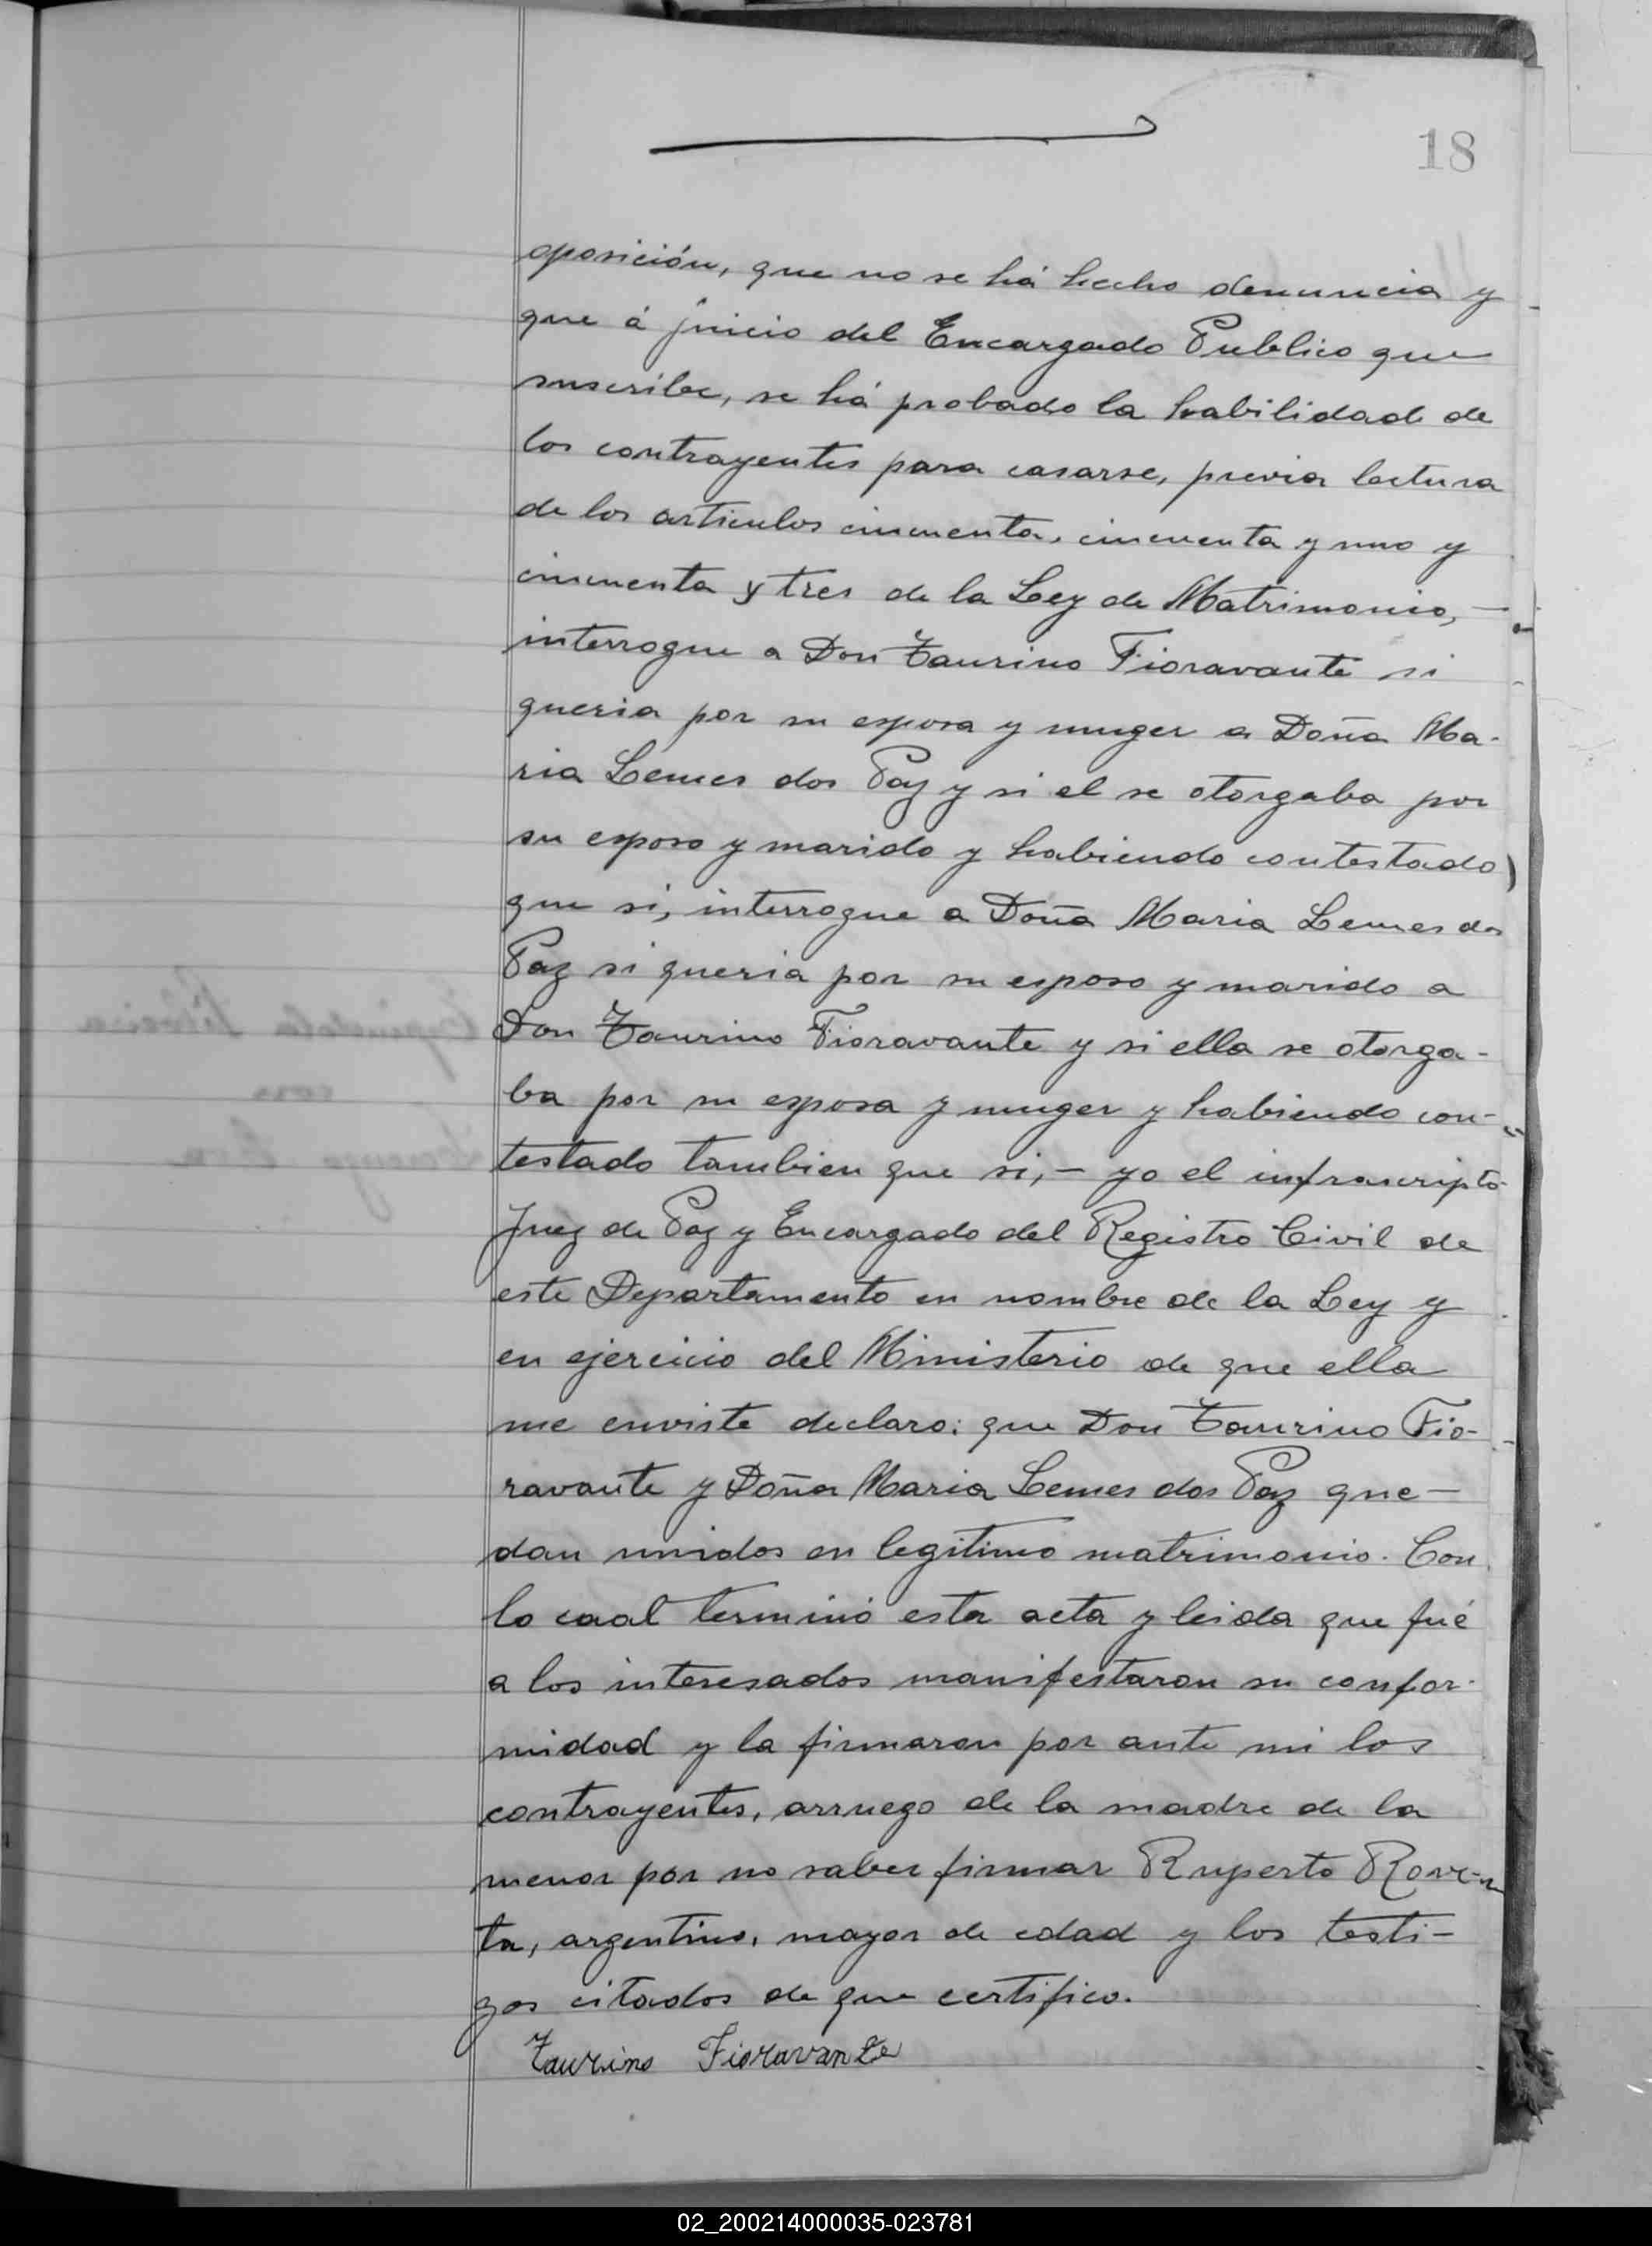 18
oposición, que no se há hecho denuncia y
que á juicio del Encargado Publico que
suscribe, se há probado la habilidad de
los contrayentes para casarse, previa lectura
de los articulos cincuenta, cincuenta y uno y
cincuenta y tres de la Ley de Matrimonio, —
interrogue a Don Taurino Fioravante si
queria por su esposa y muger a Doña Ma-
ria Lemes dos Paz y si el se otorgaba por
su esposo y marido y habiendo contestado
que si, interrogue a Doña Maria Lemes dos
Paz si queria por su esposo y marido a
Don Taurino Fioravante y si ella se otorga-
ba por su esposa y muger y habiendo con-
testado tambien que si, — yo el infrascripto
Juez de Paz y Encargado del Registro Civil de
este Departamento en nombre de la Ley y
en ejercicio del Ministerio de que ella
me enviste declaro: que Don Taurino Fio-
ravante y Doña Maria Lemes dos Paz que—
dan unidos en legitimo matrimonio. Con
lo caal terminó esta acta y leida que fué
a los interesados manifestaron su confor-
midad y la firmaron por ante mi los
contrayentes, arruego de la madre de la
menor por no saber firmar Ruperto
argentino, mayor de edad y los testi-
gos citados de que certifico.
Taurino Fioravante
02_200214000035-023781